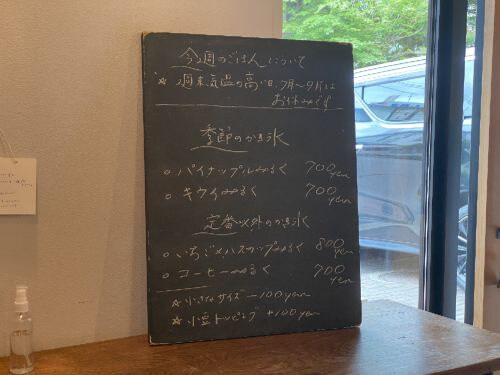 今週のごはんについて
☆ 週末、気温の高い日、7月〜9月は
お休みです
季節のかき氷
○ パイナップルみるく 700yen
○ キウイみるく 700yen
定番以外のかき氷
○ いちご×ハスカップみるく 800yen
○ コーヒーみるく 700yen
☆ 小さなサイズ -100yen
☆ 小豆トッピング +100yen